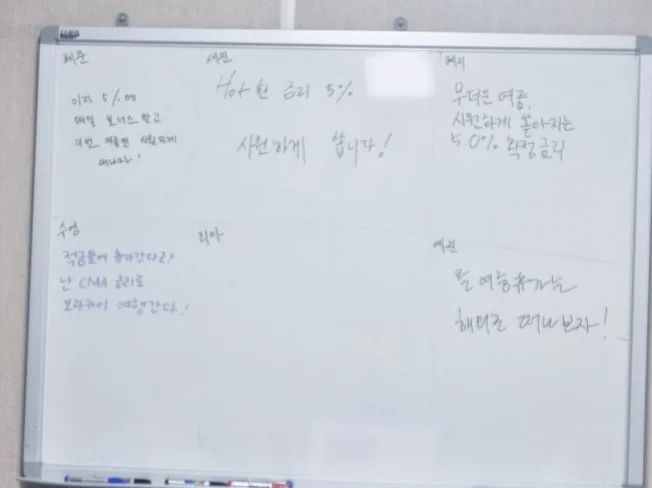 혜준
이자 5%에
매일 보너스 받고
이번 여름엔 시원하게
떠나자!
세진
Hot한 금리 5%
시원하게 쏩니다!
혜지
무더운 여름,
시원하게 쏟아지는
5.0% 확정금리
수영
적금들어 휴가간다고?
난 CMA 금리로
보라카이 여행간다!
리아
예린
올 여름휴가는
해외로 떠나보자!